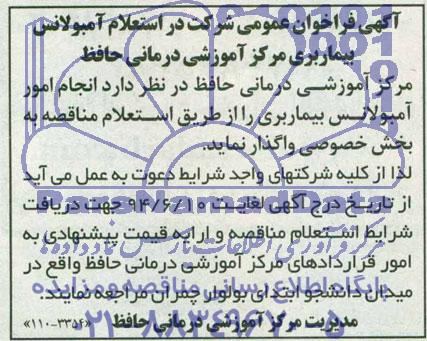 آگهی فراخوان عمومی شرکت در استعلام آمبولانس
بیماربری مرکز آموزشی درمانی حافظ
مرکز آموزشی درمانی حافظ در نظر دارد انجام امور
آمبولانس بیماربری را از طریق استعلام مناقصه به
بخش خصوصی واگذار نماید.
لذا از کلیه شرکتهای واجد شرایط دعوت به عمل می آید
از تاریخ درج آگهی لغایت ۹۴/۶/۱۰ جهت دریافت
شرایط استعلام مناقصه و ارایه قیمت پیشنهادی به
امور قراردادهای مرکز آموزشی درمانی حافظ واقع در
میدان دانشجو ابتدای بولوار چمران مراجعه نمایند.
مدیریت مرکز آموزشی درمانی حافظ «۱۱۰-۳۳۵۴»
پایگاه اطلاع رسانی مناقصه و مزایده